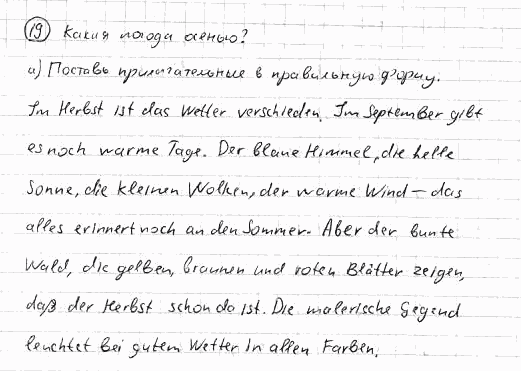 19 Какая погода осенью?
а) Поставь прилагательные в правильную форму.
Im Herbst ist das Wetter verschieden. Im September gibt
es noch warme Tage. Der blaue Himmel, die helle
Sonne, die kleinen Wolken, der warme Wind – das
alles erinnert noch an den Sommer. Aber der bunte
Wald, die gelben, braunen und roten Blätter zeigen,
daß der Herbst schon da ist. Die malerische Gegend
leuchtet bei gutem Wetter in allen Farben.